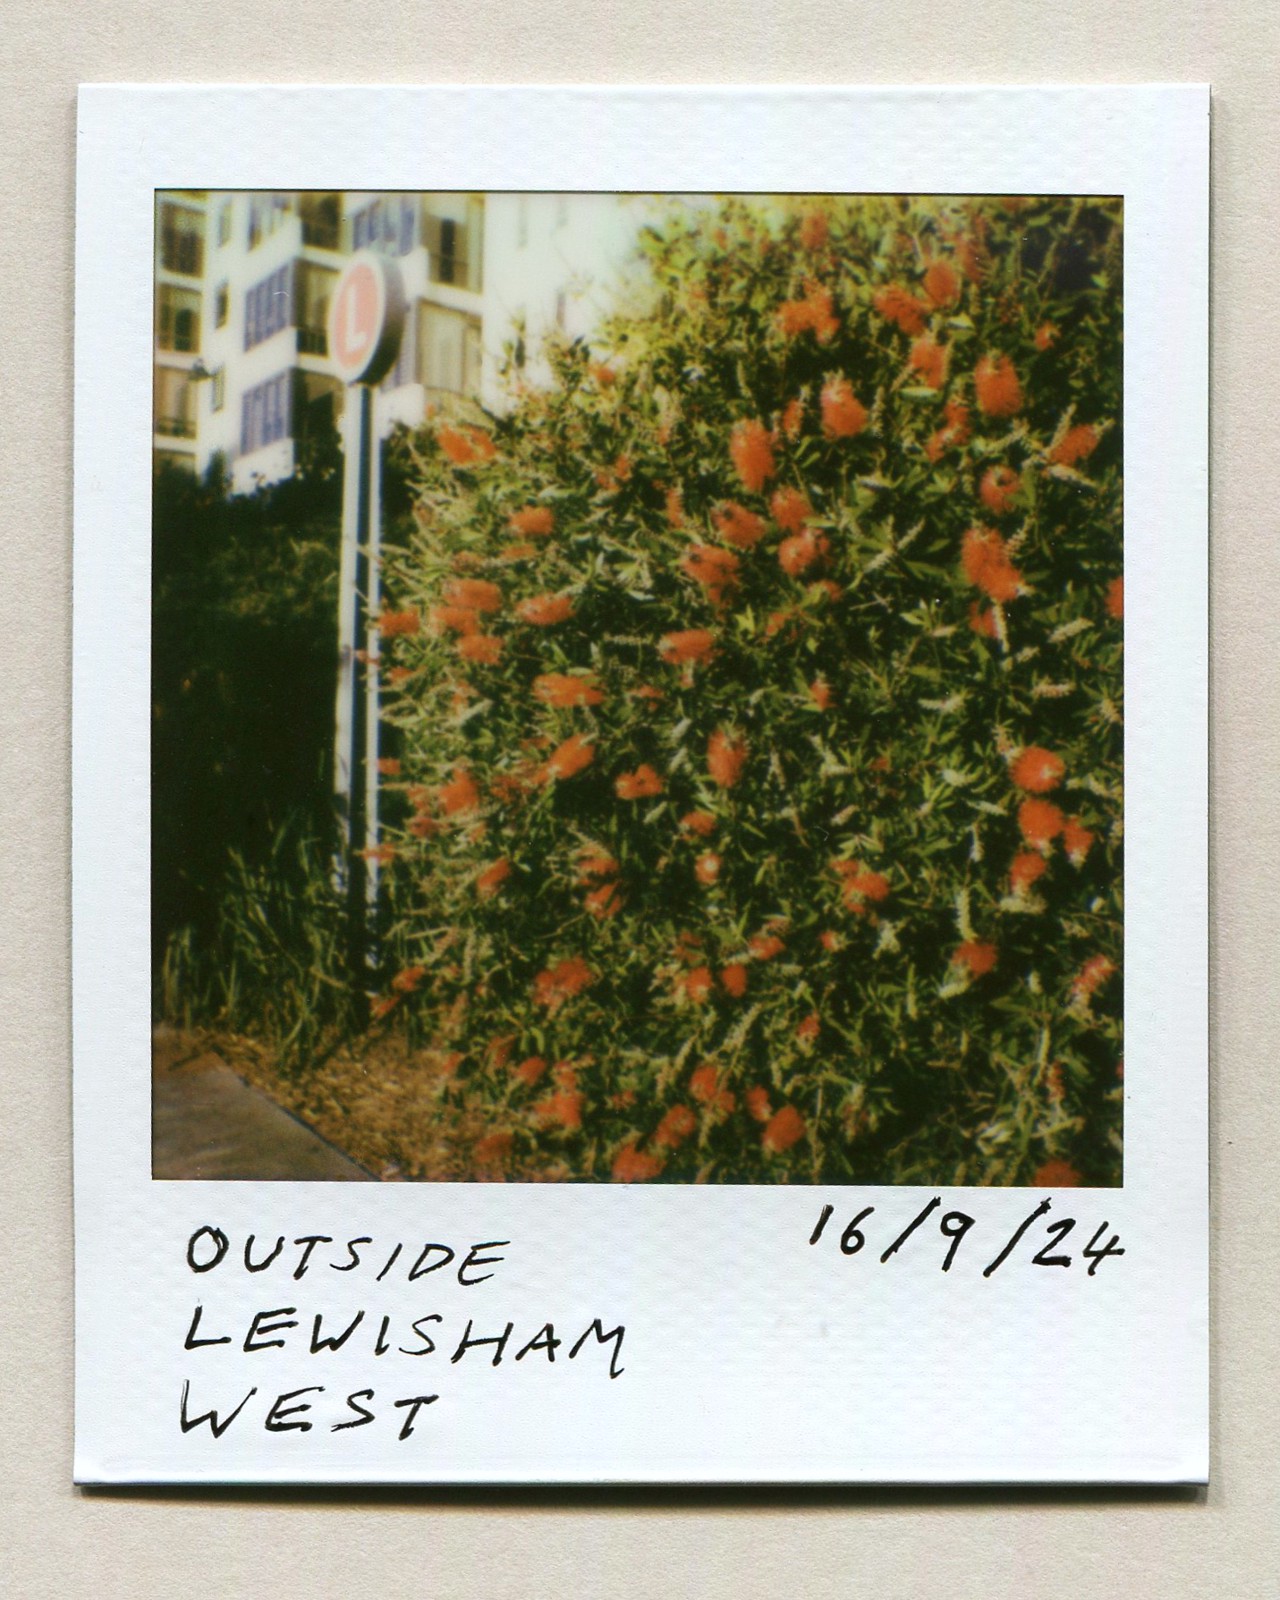 L
OUTSIDE
LEWISHAM
WEST
16/9/24